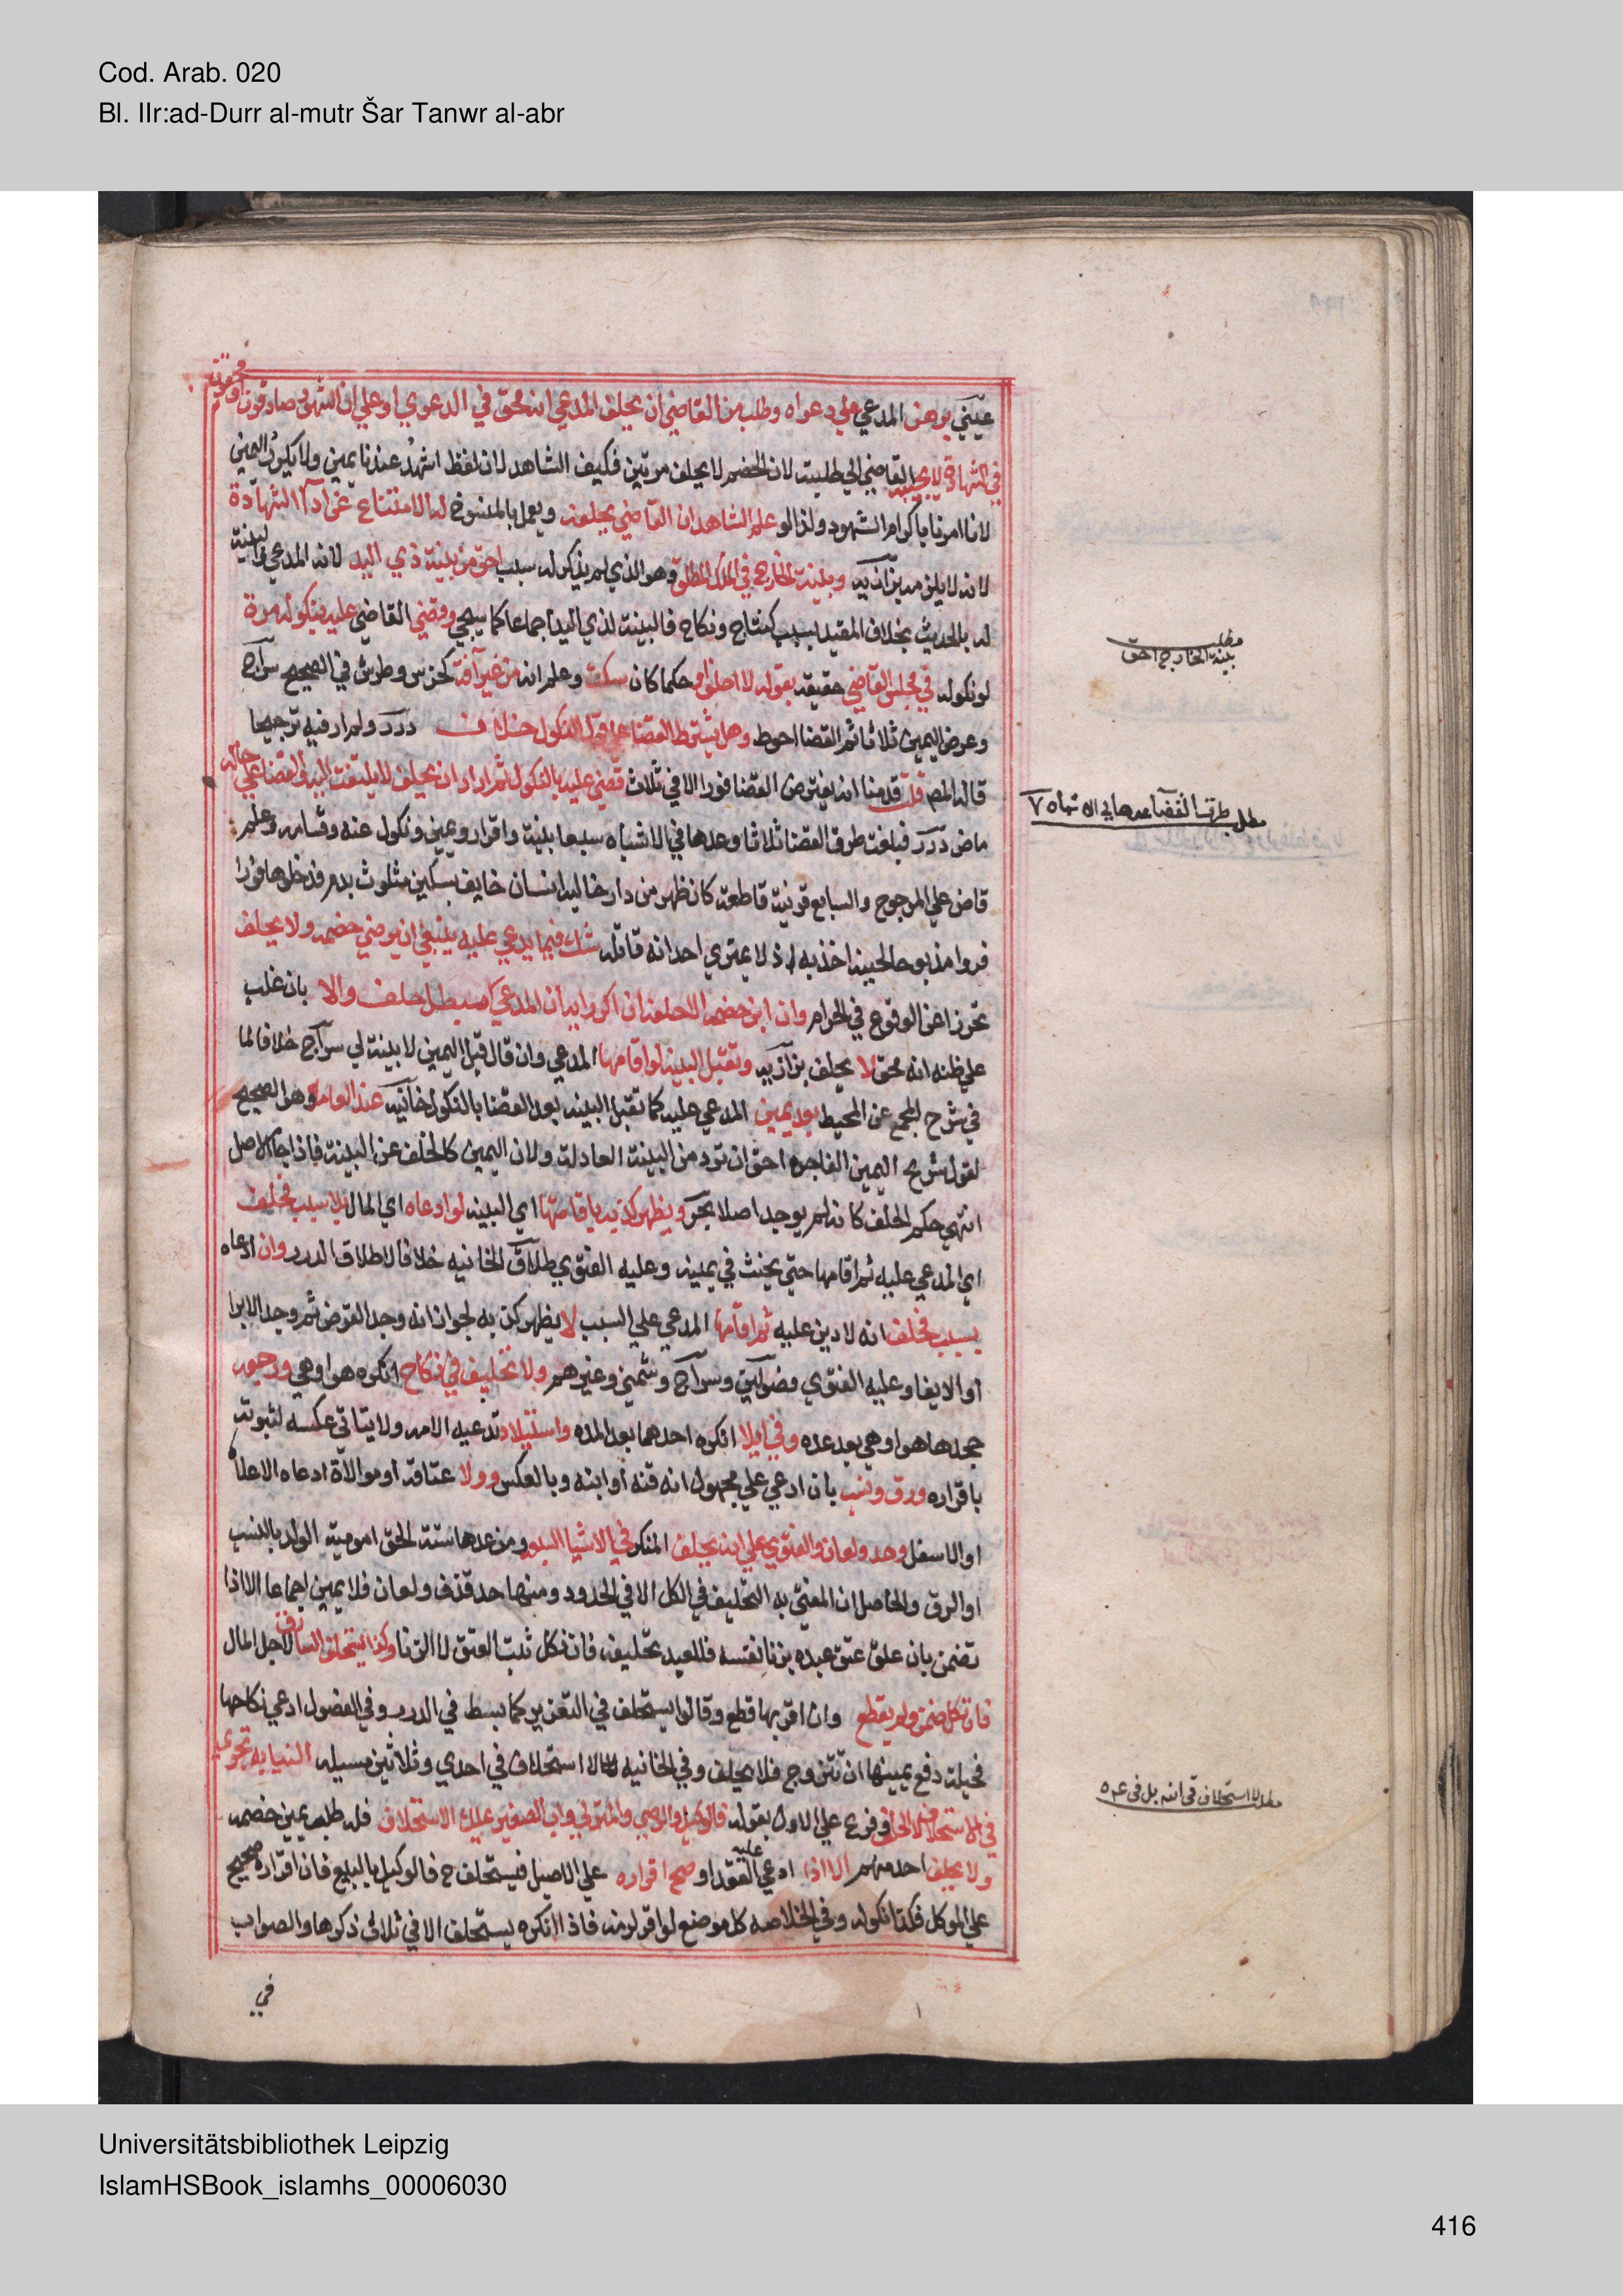 Cod. Arab. 020
Bl. IIr:ad-Durr al-mutr Šar Tanwr al-abr
عيني برهن المدعي علي دعواه وطلب من القاضي ان يحلف المدعي انه محق في الدعوي او علي ان الشهود صادقون او محقون
في الشهادة لا يجيبه القاضي الي طلبته لان الخصم لا يحلف مرتين فكيف الشاهد لان لفظ اشهد عندنا يمين ولا يكرر اليمين
لانا امرنا باكرام الشهود ولذا لو علم الشاهد ان القاضي يحلفه ويعمل بالمنسوخ له الامتناع عن ادآ الشهادة
لانه لا يلزمه بزازيه وبينة الخارج في الملك المطلق وهو الذي لم يذكر له سبب احق من بينة ذي اليد لانه المدعي والبينة
له بالحديث بخلاف المقيد بسبب كنتاج ونكاح فالبينة لذي اليد اجماعا كما سيجي وقضي القاضي عليه بنكوله مرة
لو نكوله في مجلس القاضي حقيقة بقوله لا احلف او حكما كان سكت وعلم انه من غير آفة كخرس وطرش في الصحيح سراج
وعرض اليمين ثلاثا ثم القضا احوط وهل يشترط القضا علي فور النكول خلاف درر ولم ار فيه ترجيحا
قاله المصر قلت قدمنا انه يفترض القضا فورا الا في ثلاث قضي عليه بالنكول ثم اراد ان يحلف لا يلتفت اليه والقضا علي حاله
ماض درر فبلغت طرق القضا ثلاثا وعدها في الاشباه سبعا بينة واقرار ويمين ونكول عنه وقسامه وعلم
قاض علي المرجوح والسابع قرينة قاطعة كان ظهر من دار خاليه انسان خايف بسكين متلوث بدم فدخلوها فورا
فراوا مذبوحا لحينه اخذ به اذ لا يمتري احد انه قاتله شك فيما يدعي عليه ينبغي ان يرضي خصمه ولا يحلف
تحرزا عن الوقوع في الحرام وان ابي خصمه الا حلفه ان اكبر رايه ان المدعي مبطل حلف والا بان غلب
علي ظنه انه محق لا يحلف بزازيه وتقبل البينه لو اقامها المدعي وان قال قبل اليمين لا بينة لي سراج خلافا لما
في شرح المجمع عن المحيط بعد يمين المدعي عليه كما تقبل البينه بعد القضا بالنكول خانيه عند العامه وهو الصحيح
لقول شريح اليمين الفاجره احق ان ترد من البينة العادلة ولان اليمين كالخلف عن البينة فاذا جا الاصل
انتهي حكم الخلف كانه لم يوجد اصلا بحر ويظهر كذبه باقامتها اي البينه لو ادعاه اي المال بلا سبب فحلف
اي المدعي عليه ثم اقامها حتي يحنث في يمينه وعليه الفتوي طلاق الخانيه خلافا لاطلاق الدرر وان ادعاه
بسبب فحلف انه لا دين عليه ثم اقامها المدعي علي السبب لا يظهر كذبه لجواز انه وجد القرض ثم وجد الابرا
او الايفا وعليه الفتوي فصولين وسراج وشمني وغيرهم ولا تحليف في نكاح انكره هو او هي ورجعه
جحدها هو او هي بعد عده وفي ايلا انكره احدهما بعد المده واستيلاد تدعيه الامه ولا يتاتي عكسه لثبوته
باقراره ورق ونسب بان ادعي علي مجهول انه قنه او ابنه وبالعكس وولا عتاقة او موالاة ادعاه الاعلا
او الاسفل وحد ولعان والفتوي علي انه يحلف المنكر في الاشيا السبعه ومن عدها ستة الحق امومية الولد بالنسب
او الرق والحاصل ان المفتي به التحليف في الكل الا في الحدود ومنها حد قذف ولعان فلا يمين اجماعا الا اذا
تضمن بان علق عتق عبده بزنا نفسه فللعبد تحليفه فان نكل ثبت العتق لا الزنا وكذا يستحلف السارق لاجل المال
فان نكل ضمن ولم يقطع وان اقر بها قطع وقالوا يستحلف في التعزير كما بسط في الدرر وفي الفصول ادعي نكاحها
فحيلة دفع يمينها ان تتزوج فلا يحلف وفي الخانيه لا استحلاف في احدي وثلاثين مسيله النيابه تجري
في الاستحلاف لا الحلف وفرع علي الاول بقوله فالوكيل والوصي والمتولي واب الصغير يملك الاستحلاف فله طلب يمين خصمه
ولا يحلف احد منهم الا اذا ادعي عليه العقد او صح اقراره علي الاصيل فيستحلف ح فالوكيل بالبيع فان اقراره صحيح
علي الموكل فكذا نكوله وفي الخلاصه كل موضع لو اقر لزمه فاذا انكره يستحلف الا في ثلاث ذكرها والصواب
في
مطلب
بينة الخارج احق
مطلب طرق القضا عدها في الاشباه ٧
مطلب لا استحلاف في
Universitätsbibliothek Leipzig
IslamHSBook_islamhs_00006030
416